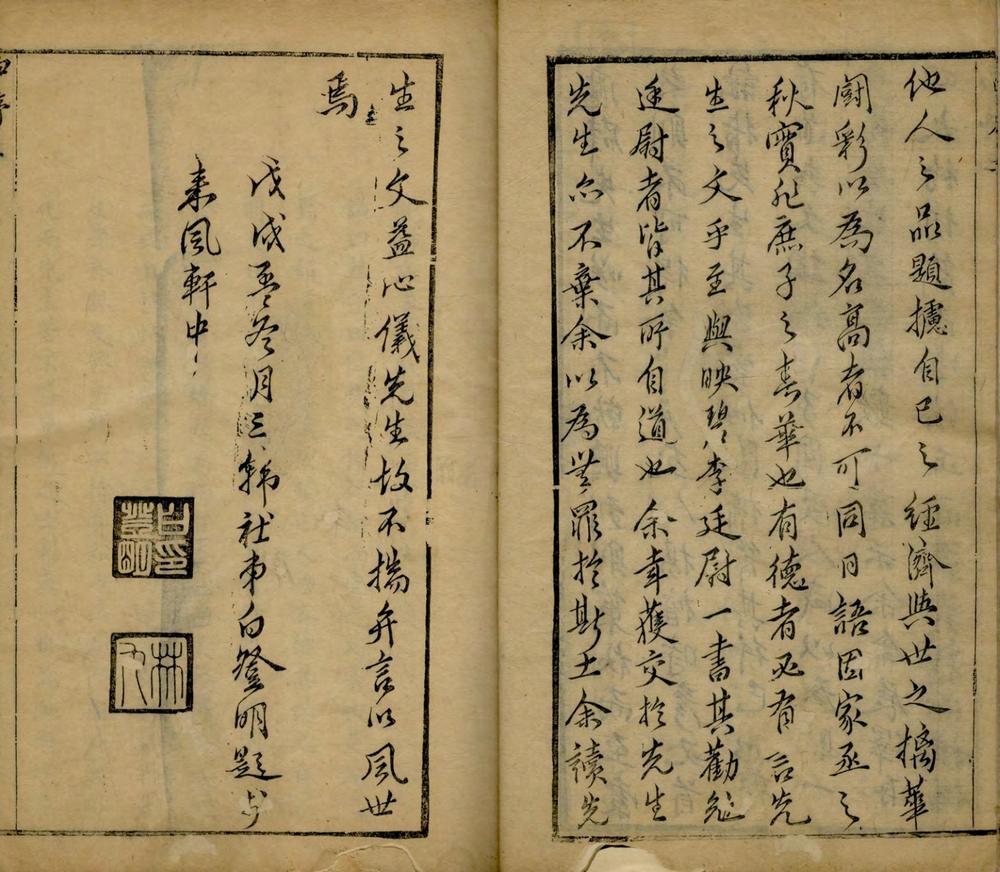 他人之品題攄自己之經濟與世之摛華
鬭彩以為名髙者不可同日語固家丞之
秋實非庶子之春華也有德者必有言先
生之文乎至與映碧李廷尉一書其勸勉
廷尉者皆其所自道也余幸獲交於先生
先生亦不棄余以為無罪於斯土余讀先
生之文益心儀先生故不揣弁言以風世
焉
戊戌孟冬月三韓社弟白登明題於
来風軒中
白印登明
林九